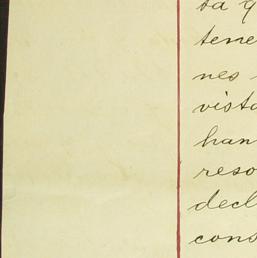 ta q
tene
nes
vista
han
reso
decl
cons